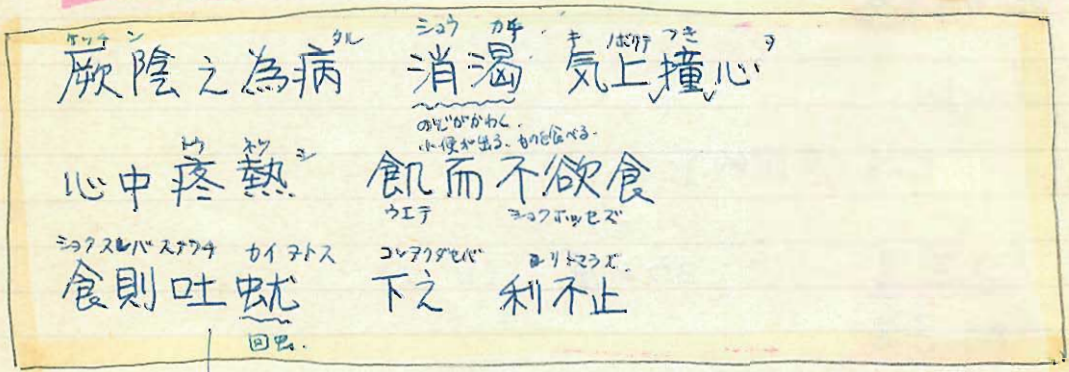 ケッチン タル ショウ カチ キ ノボリテ つき ヲ
厥陰之為病 消渇 気上撞心
のどがかわく。
小便が出る、ものを食べる。
トウ ネツ シ
心中疼熱 飢而不欲食
ウエテ ショクホッセズ
ショクスレバスナワチ カイヲトス コレヲクダセバ リトマラズ。
食則吐蚘 下之 利不止
回虫。